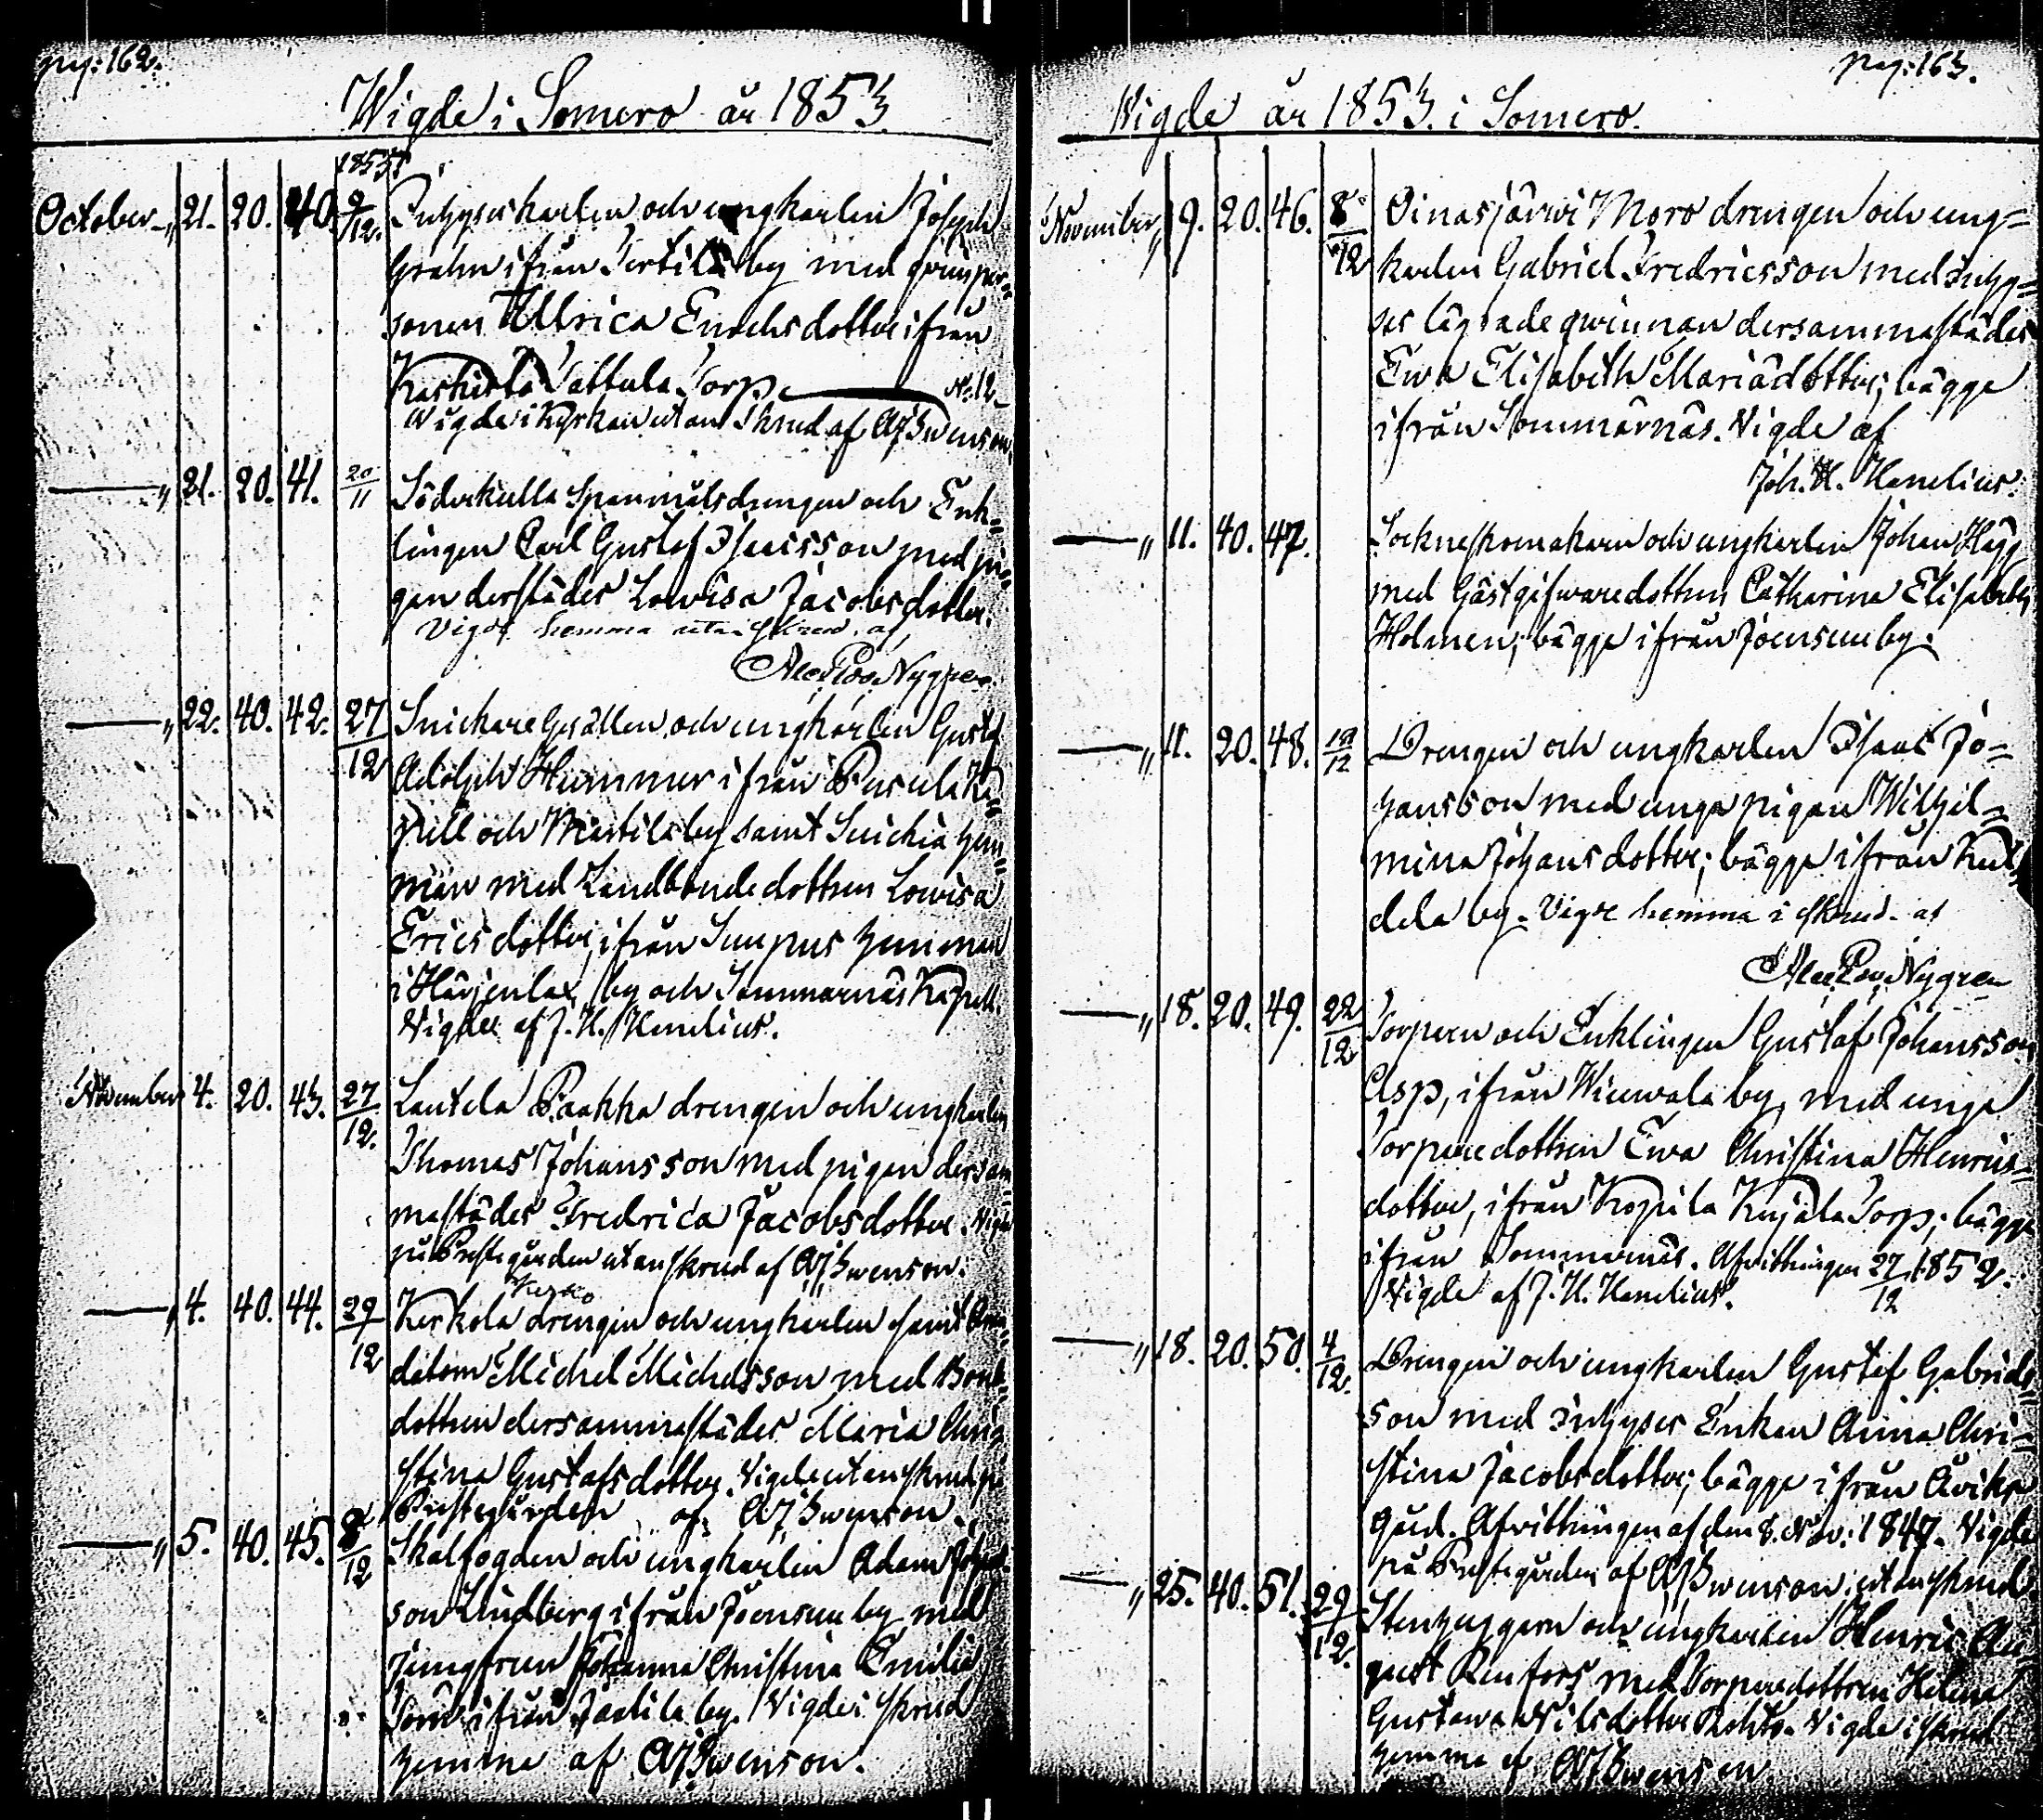 pag: 162.
Wigde i Somero år 1853.
1853
October „ 21. 20. 40. 9/12. Inhyseskarlen och ungkarlen Joseph
Grahn ifrån Pertila by med qvinsper=
sonen Ullrica Enochsdotter ifrån
Torp. N:o 12.
Wigde i Kyrkan utan skrud af AJSwenson
— „ 21. 20. 41. 20/11 Söderkulla Spanmålsdrengen och Enk=
lingen Carl Gustaf Isacsson med pi=
gan derstädes Lowisa Jacobsdotter.
Vigde hemma utan skrud af
Nygren.
— „ 22. 40. 42. 27/12 Snickare Gesällen och ungkarlen Gustaf
Adolph Hummer ifrån Pusula Ka=
pell och Mertila by samt Suickia hem=
man med Landbondedottren Lowisa
Ericsdotter, ifrån Simpus hemman
i Härjenlax by och Sommarnäs Kapell.
Vigde af J. H. Hanelius.
November 4. 20. 43. 27/12. Lautela Paakka drengen och ungkarlen
Thomas Johansson med pigan dersam=
mastädes Fredrica Jacobsdotter. Vigde
på Prestegården utan skrud af AJSwenson.
— „ 4. 40. 44. 29/12 Kerkola drengen och ungkarlen samt
Michel Michelsson med Bond=
dottren dersammastädes Maria Chri=
stina Gustafsdotter. Vigde utan skrud på
Prestegården af AJSwenson.
— „ 5. 40. 45. 8/12 Skallfogden och ungkarlen Adam Johans=
son Lindberg ifrån Joensuu by med
jungfrun Johanna Christina Emilia
ifrån Jaatila by. Vigde i skrud
hemma af AJSwenson.
pag: 163.
Wigde år 1853. i Somero.
November „ 9. 20. 46. 8/12 Oinasjärwi Moro drengen och ung=
karlen Gabriel Fredricsson med Inhy=
ses lägrade qwinnan dersammastädes
Ewa Elisabeth Mariædotter; bägge
ifrån Sommarnäs. Vigde af
Joh. H. Hanelius.
— „ 11. 40. 47. Sockneskomakaren och ungkarlen Johan Hägg
med Gästgifwaredottren Catharina Elisabeth
Holmen; bägge ifrån Joensuu by.
— „ 11. 20. 48. 19/12 Drengen och ungkarlen Isaac Jo=
hansson med unga pigan Wilhel=
mina Johansdotter; bägge ifrån
by. Vigde hemma i skrud af
Nygren
— „ 18. 20. 49. 22/12 Torparen och Enklingen Gustaf Johansson
Asp, ifrån Wiuwala by, med unga
Torparedottren Ewa Christina Henrics=
dotter, ifrån Kopila Kujala Torp; bägge
ifrån Sommarnäs. Afvittringen 27/12 1852.
Vigde af J. H. Hanelius.
— „ 18. 20. 50. 4/12. Drengen och ungkarlen Gustaf Gabriels=
son med inhyses Enkan Anna Chri=
stina Jacobsdotter; bägge ifrån Åvik
Gård. Afvittringen af den 8. Nov: 1847. Vigde
på Prestegården af AJSwenson utan skrud
— „ 25. 40. 51. 29/12. Stenhuggaren och ungkarlen Henric Au=
gust Renfors med Torparedottren Helena
Gustawa Nilsdotter Vigde i skrud
hemma af AJSwenson.